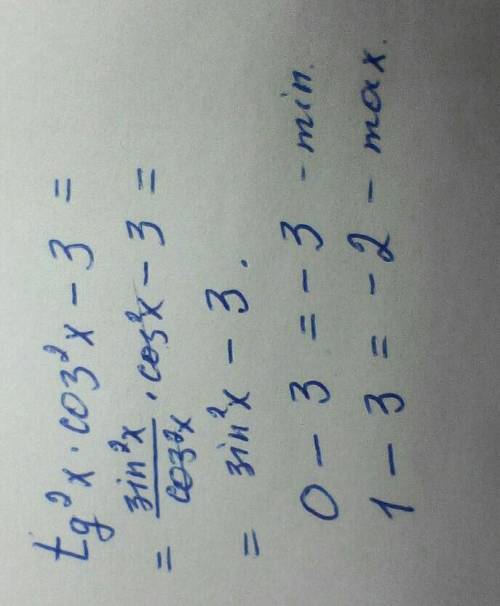 tg²x · cos²x − 3 =
= sin²x/cos²x · cos²x − 3 =
= sin²x − 3.
0 − 3 = −3 − min.
1 − 3 = −2 − max.